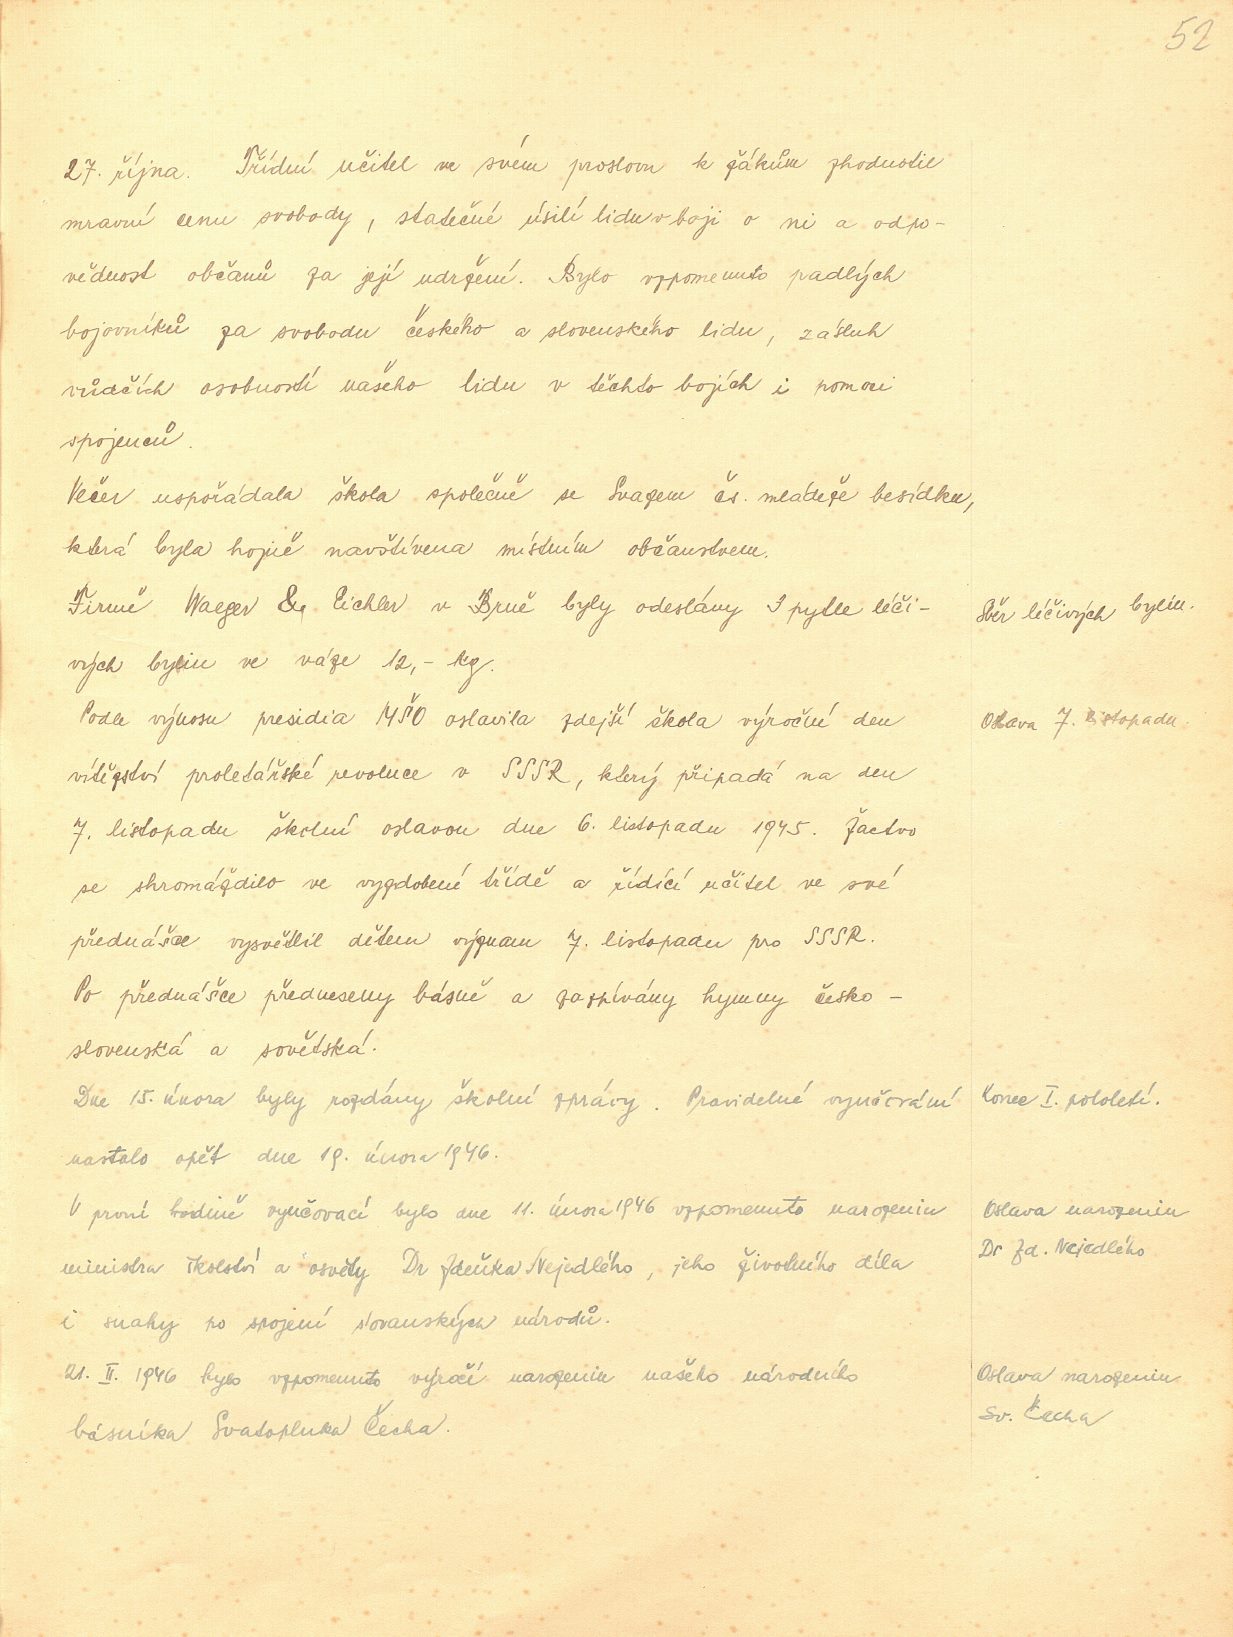 52
27. října. Třídní učitel ve svém proslovu k žákům zhodnotil
mravní cenu svobody, statečné úsilí lidu v boji o ni a odpo-
vědnost občanů za její udržení. Bylo vzpomenuto padlých
bojovníků za svobodu českého a slovenského lidu, zásluh
vůdčích osobností našeho lidu v těchto bojích i pomoci
spojenců.
Večer uspořádala škola společně se Svazem čs. mládeže besídku,
která byla hojně navštívena místním občanstvem.
Firmě Waeger & Eichler v Brně byly odeslány 3 pytle léči-
vých bylin ve váze 12,- kg.
Sběr léčivých bylin.
Podle výnosu presidia MŠO oslavila zdejší škola výroční den
vítězství proletářské revoluce v SSSR, který připadá na den
7. listopadu školní oslavou dne 6. listopadu 1945. Žactvo
se shromáždilo ve vyzdobené třídě a řídící učitel ve své
přednášce vysvětlil dětem význam 7. listopadu pro SSSR.
Po přednášce předneseny básně a zazpívány hymny česko-
slovenská a sovětská.
Oslava 7. listopadu.
Dne 15. února byly rozdány školní zprávy. Pravidelné vyučování
nastalo opět dne 19. února 1946.
Konec I. pololetí.
V první hodině vyučovací bylo dne 11. února 1946 vzpomenuto narozenin
ministra školství a osvěty Dr Zdeňka Nejedlého, jeho životního díla
i snahy po spojení slovanských národů.
Oslava narozenin
Dr Zd. Nejedlého
21. II. 1946 bylo vzpomenuto výročí narozenin našeho národního
básníka Svatopluka Čecha.
Oslava narozenin
Sv. Čecha